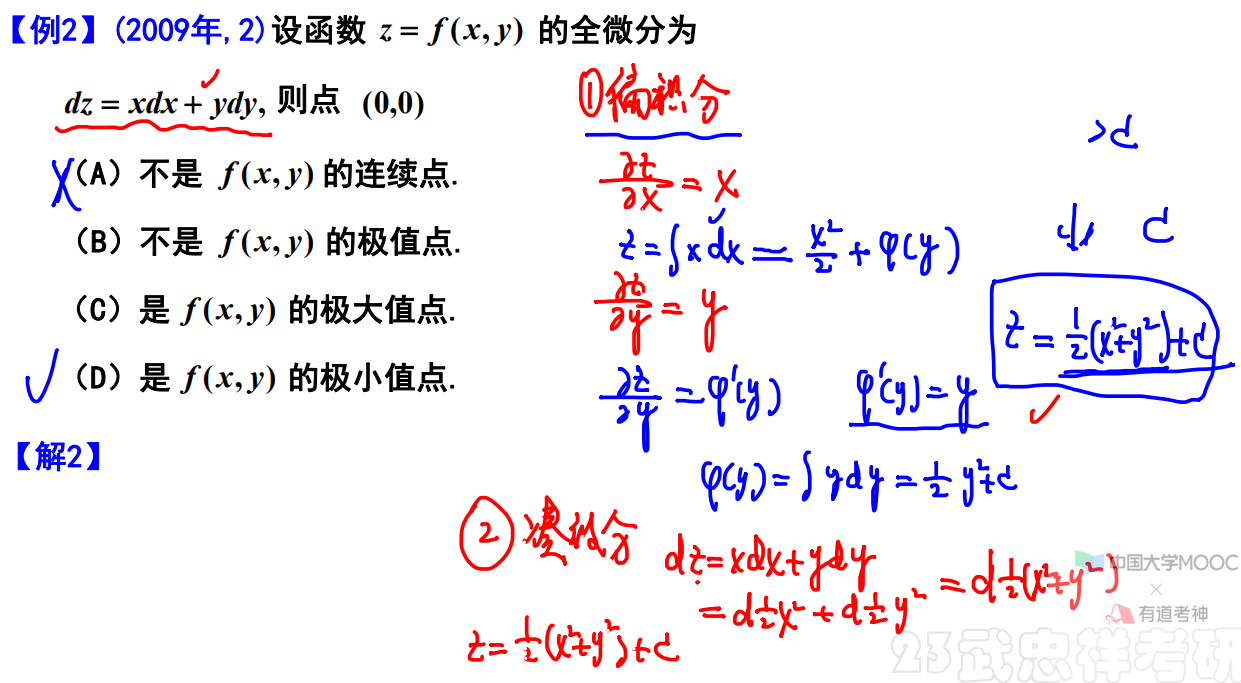 【例2】(2009年,2)设函数 z = f(x,y) 的全微分为
dz = xdx + ydy, 则点 (0,0)
(A) 不是 f(x,y) 的连续点.
(B) 不是 f(x,y) 的极值点.
(C) 是 f(x,y) 的极大值点.
(D) 是 f(x,y) 的极小值点.
【解2】
①偏积分
∂z/∂x = x
z = ∫x dx = x²/2 + φ(y)
∂z/∂y = y
∂z/∂y = φ'(y) φ'(y) = y
φ(y) = ∫ y dy = 1/2 y² + C
C
z = 1/2(x²+y²)+C
② 凑微分
dz = xdx + ydy
= d1/2x² + d1/2y² = d1/2(x²+y²)
z = 1/2(x²+y²)+C
中国大学MOOC
×
有道考神
23武忠祥考研